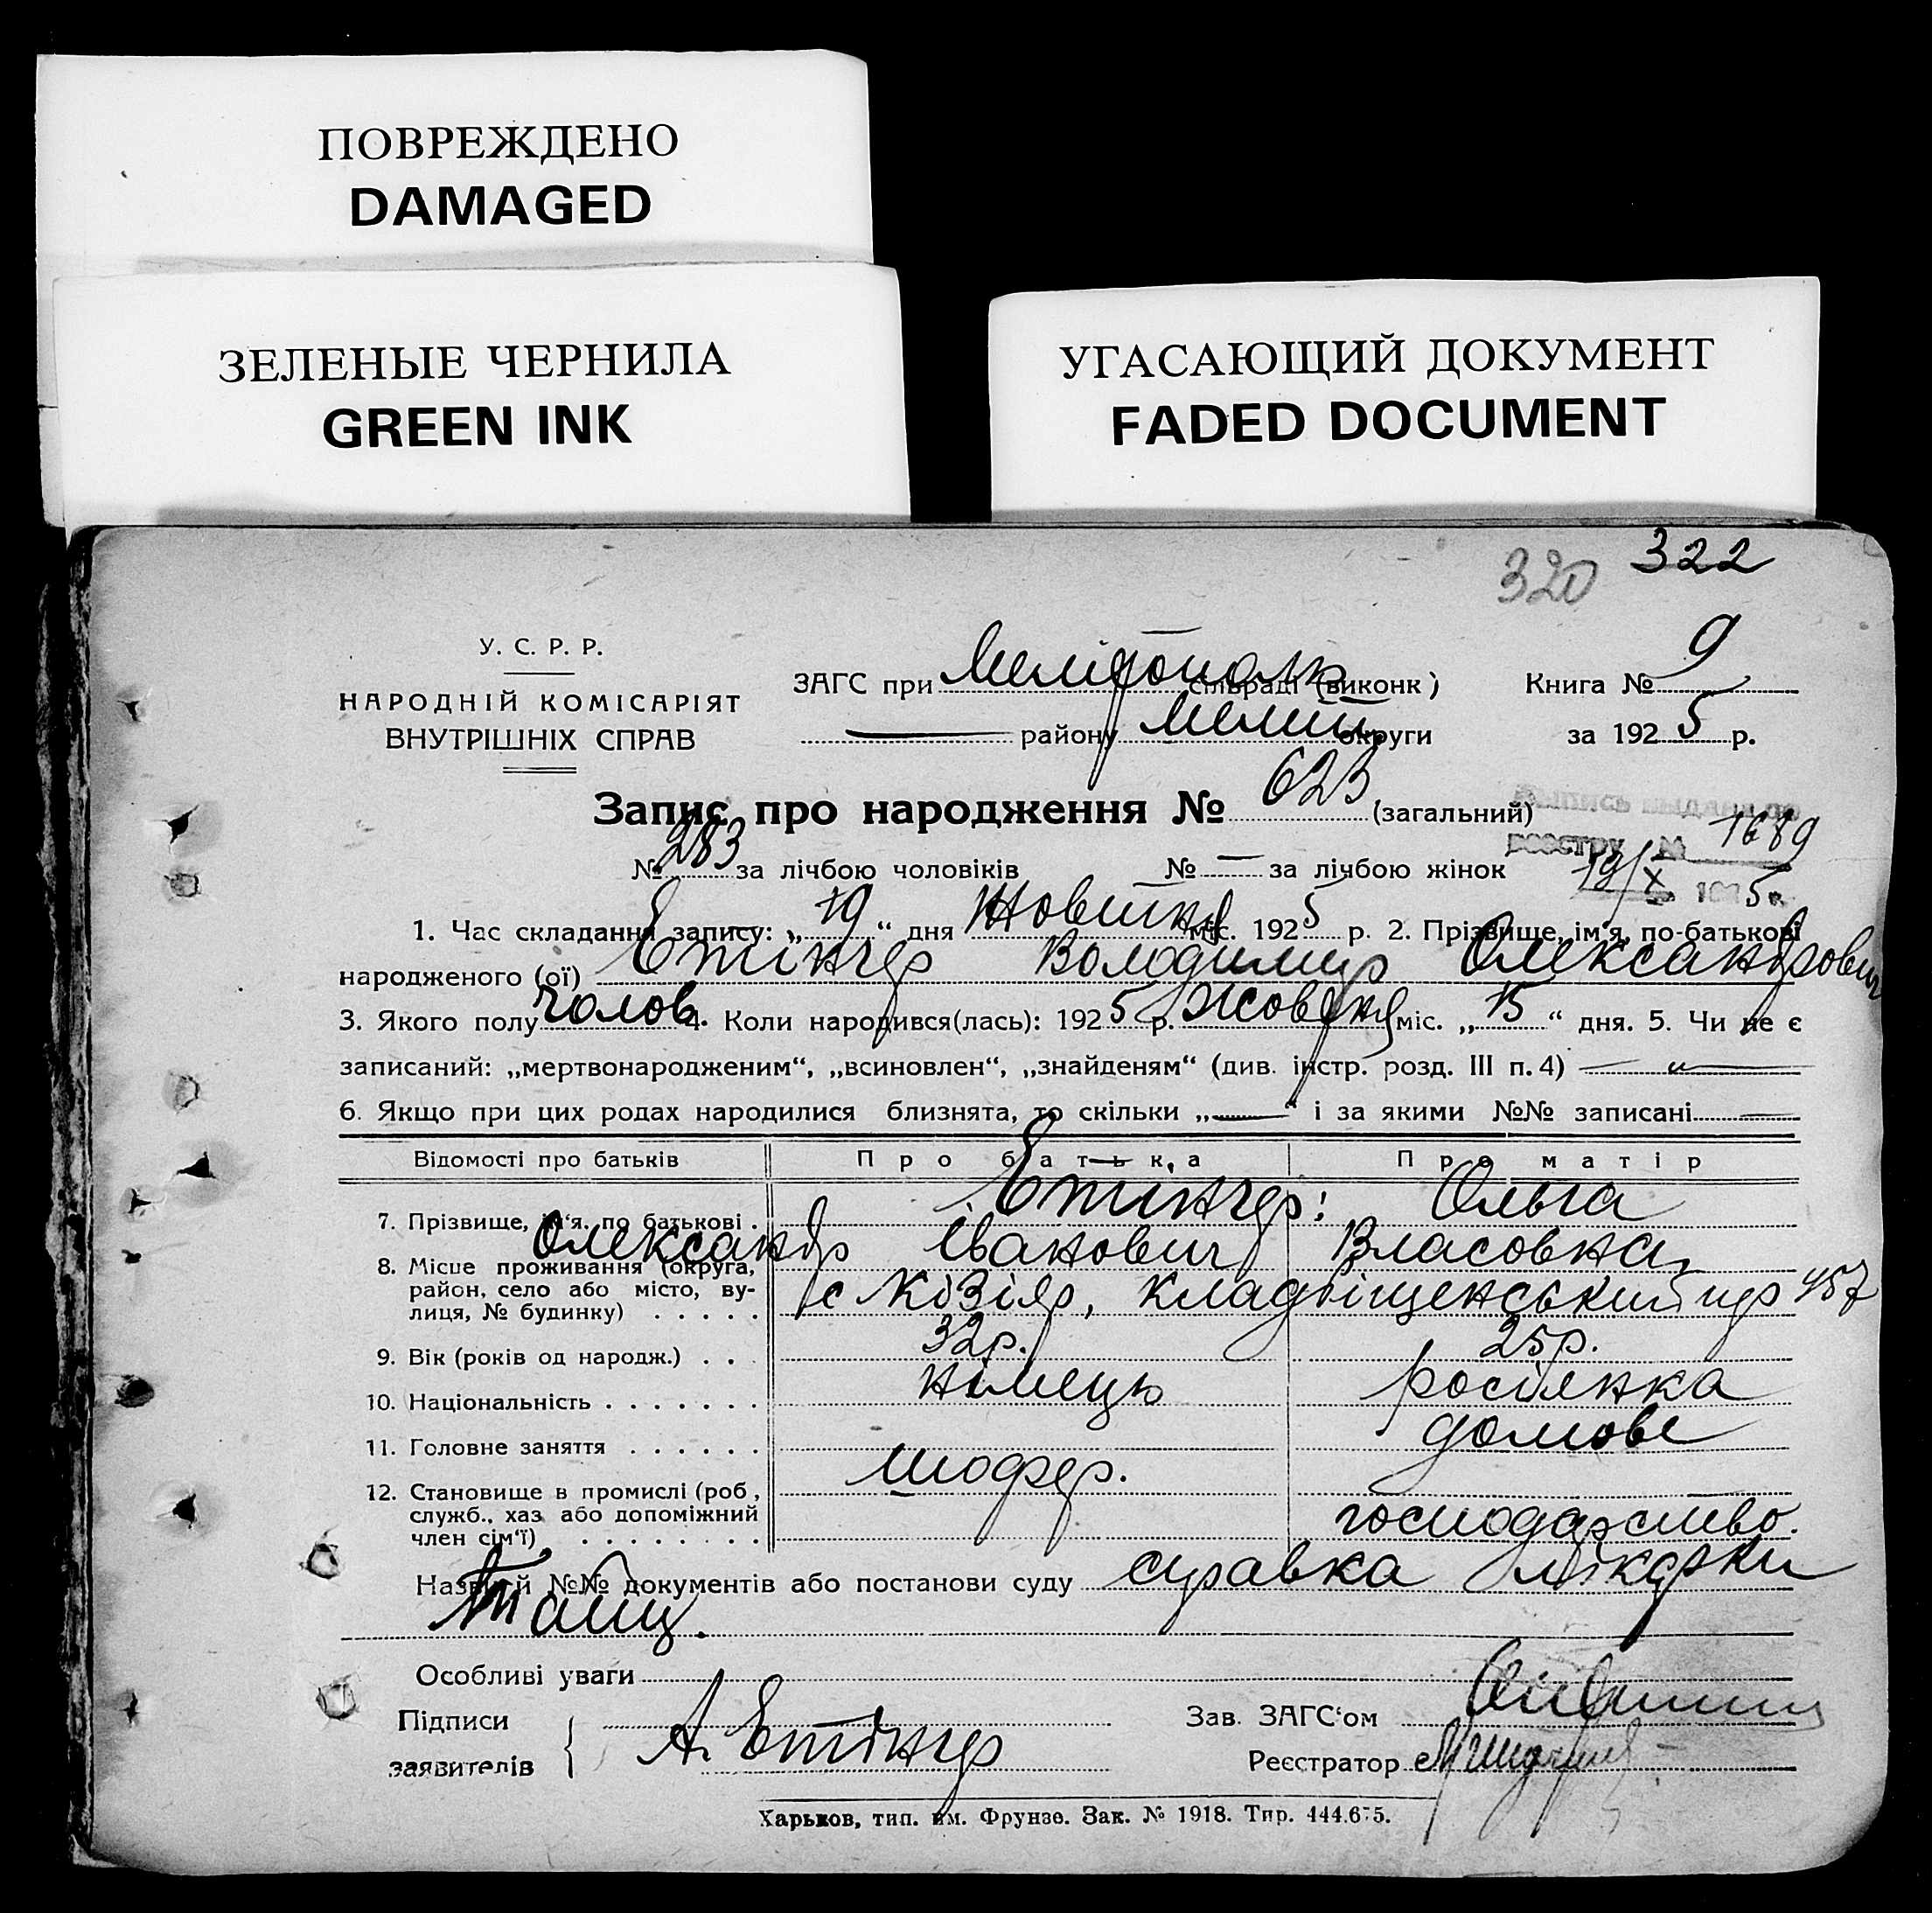 ПОВРЕЖДЕНО
DAMAGED
ЗЕЛЕНЫЕ ЧЕРНИЛА
GREEN INK
УГАСАЮЩИЙ ДОКУМЕНТ
FADED DOCUMENT
320 322
У. С. Р. Р.
НАРОДНІЙ КОМІСАРІЯТ
ВНУТРІШНІХ СПРАВ
ЗАГС при Мелітополь сільраді (виконк) Книга № 9
— району Меліт округи за 1925 р.
Запис про народження № 623 (загальний)
Выпись выдана по
реестру № 1689
19/X 1925 г.
№ 283 за лічбою чоловіків № — за лічбою жінок
1. Час складання запису: „19“ дня Жовтня міс. 1925 р. 2. Прізвище, ім'я, по-батькові
народженого (ої) Етінгер Володимир Олександрович
3. Якого полу чолов. 4. Коли народився(лась): 1925 р. Жовтня міс. „15“ дня. 5. Чи не є
записаний: „мертвонародженим“, „всиновлен“, „знайденям“ (див. інстр. розд. III п. 4) — „ —
6. Якщо при цих родах народилися близнята, то скільки „—“ і за якими №№ записані —
Відомості про батьків Про батька Про матір
7. Прізвище, ім'я, по батькові . Етінгер: Ольга
Олександр Іванович Власовна
8. Місце проживання (округа,
район, село або місто, ву-
лиця, № будинку) . . . . . с Кізіяр, Кладвіщенський пр 457
9. Вік (років од народж.) . . . 32р. 25р.
10. Національність . . . . . . . німець росіянка
11. Головне заняття . . . . . . шофер. домове
12. Становище в промислі (роб,
служб., хаз. або допоміжний
член сім'ї) . . . . . . . . . господарство.
Назви й №№ документів або постанови суду справка лікарки
Особливі уваги
Підписи
заявителів А. Етінгер
Зав. ЗАГС'ом
Реєстратор
Харьков, тип. им. Фрунзе. Зак. № 1918. Тир. 444.675.